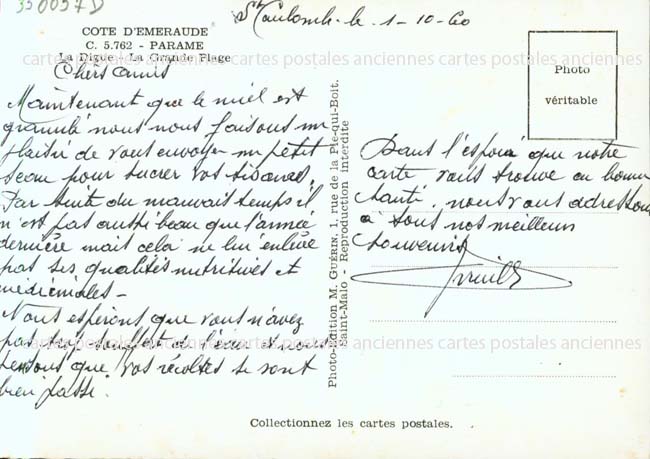 350057D
St Coulomb - le 1-10-60
COTE D'EMERAUDE
C. 5.762 - PARAME
La Digue - La Grande Plage
Chers amis
Maintenant que le miel est
granulé nous nous faisons un
plaisir de vous envoyer un petit
seau pour sucrer vos tisanes.
Par suite du mauvais temps il
n'est pas aussi beau que l'année
dernière mais cela ne lui enlève
pas ses qualités nutritives et
médicinales -
Nous espérons que vous n'avez
pas trop souffert de l'eau et nous
pensons que vos récoltes se sont
bien passé.
Photo-Edition M. GUÉRIN, 1, rue de la Pie-qui-Boit.
Saint-Malo - Reproduction interdite
Photo
véritable
Dans l'espoir que notre
carte vous trouve en bonne
santé, nous vous adressons
à tous nos meilleurs
souvenirs
Collectionnez les cartes postales.
cartes postales anciennes cartes postales anciennes cartes postales anciennes
cartes postales anciennes cartes postales anciennes cartes postales anciennes